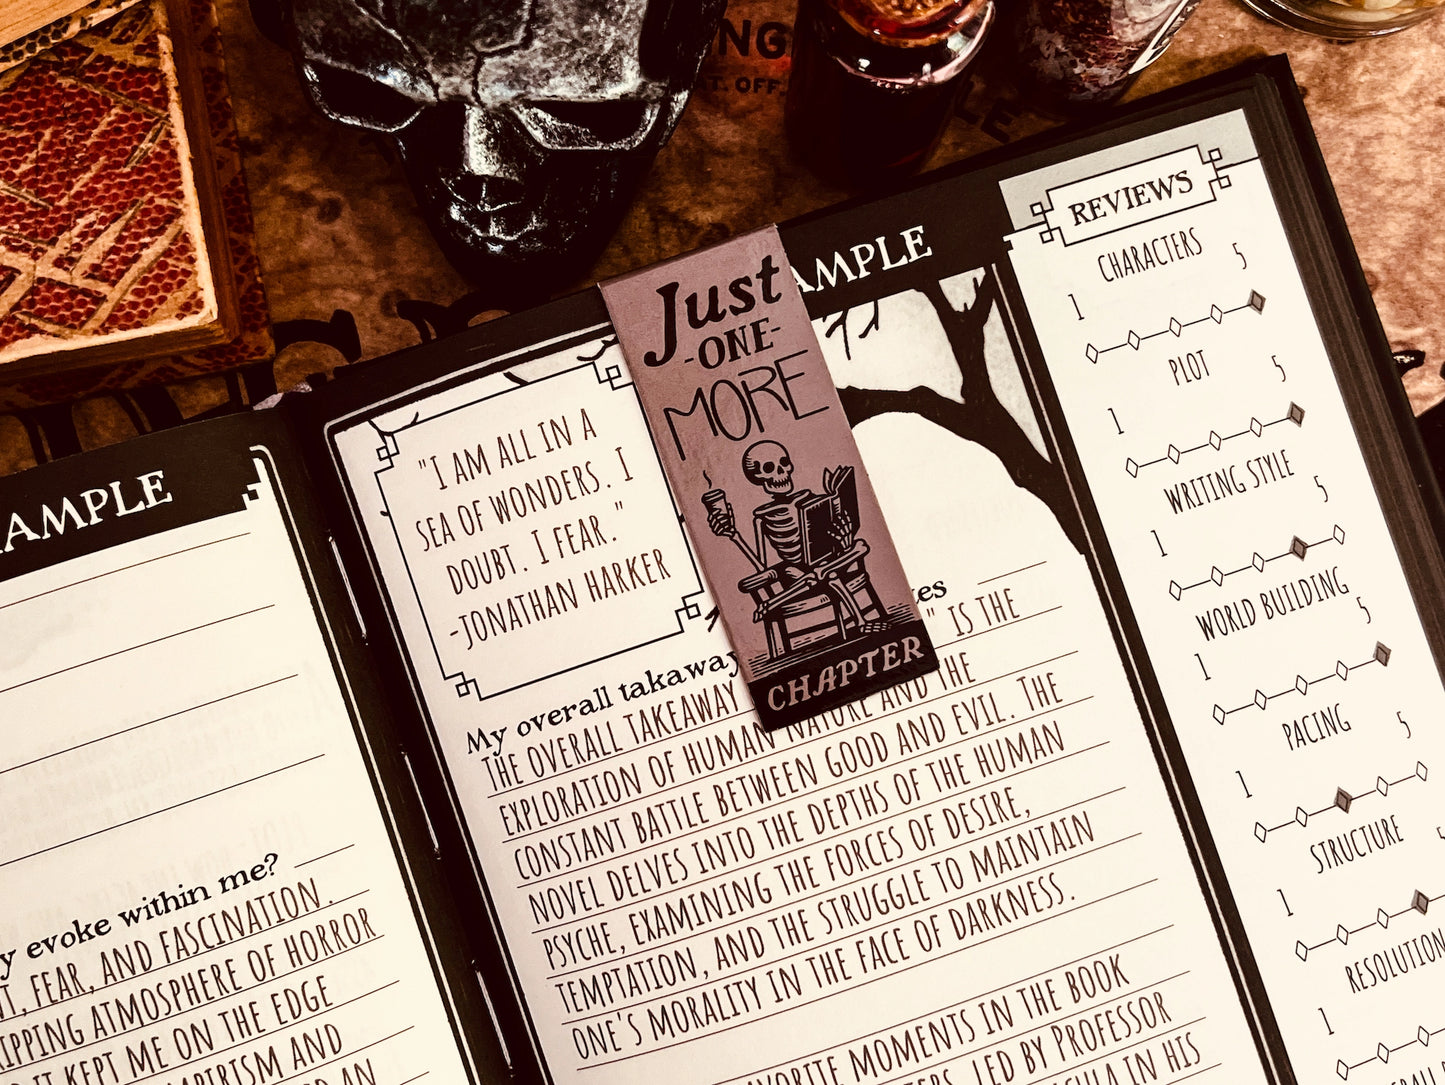 NG
T. OFF.
LE
AMPLE
y evoke within me?
T, FEAR, AND FASCINATION.
IPPING ATMOSPHERE OF HORROR
IT KEPT ME ON THE EDGE
MPIRISM AND
AN
AMPLE
"I AM ALL IN A
SEA OF WONDERS. I
DOUBT. I FEAR."
-JONATHAN HARKER
Just
-ONE-
MORE
CHAPTER
My overall takeaway
es
THE OVERALL TAKEAWAY " IS THE
EXPLORATION OF HUMAN NATURE AND THE
CONSTANT BATTLE BETWEEN GOOD AND EVIL. THE
NOVEL DELVES INTO THE DEPTHS OF THE HUMAN
PSYCHE, EXAMINING THE FORCES OF DESIRE,
TEMPTATION, AND THE STRUGGLE TO MAINTAIN
ONE'S MORALITY IN THE FACE OF DARKNESS.
AVORITE MOMENTS IN THE BOOK
TERS, LED BY PROFESSOR
CULA IN HIS
REVIEWS
CHARACTERS
1 5
PLOT
1 5
WRITING STYLE
1 5
WORLD BUILDING
1 5
PACING
1 5
STRUCTURE
1 5
RESOLUTION
1